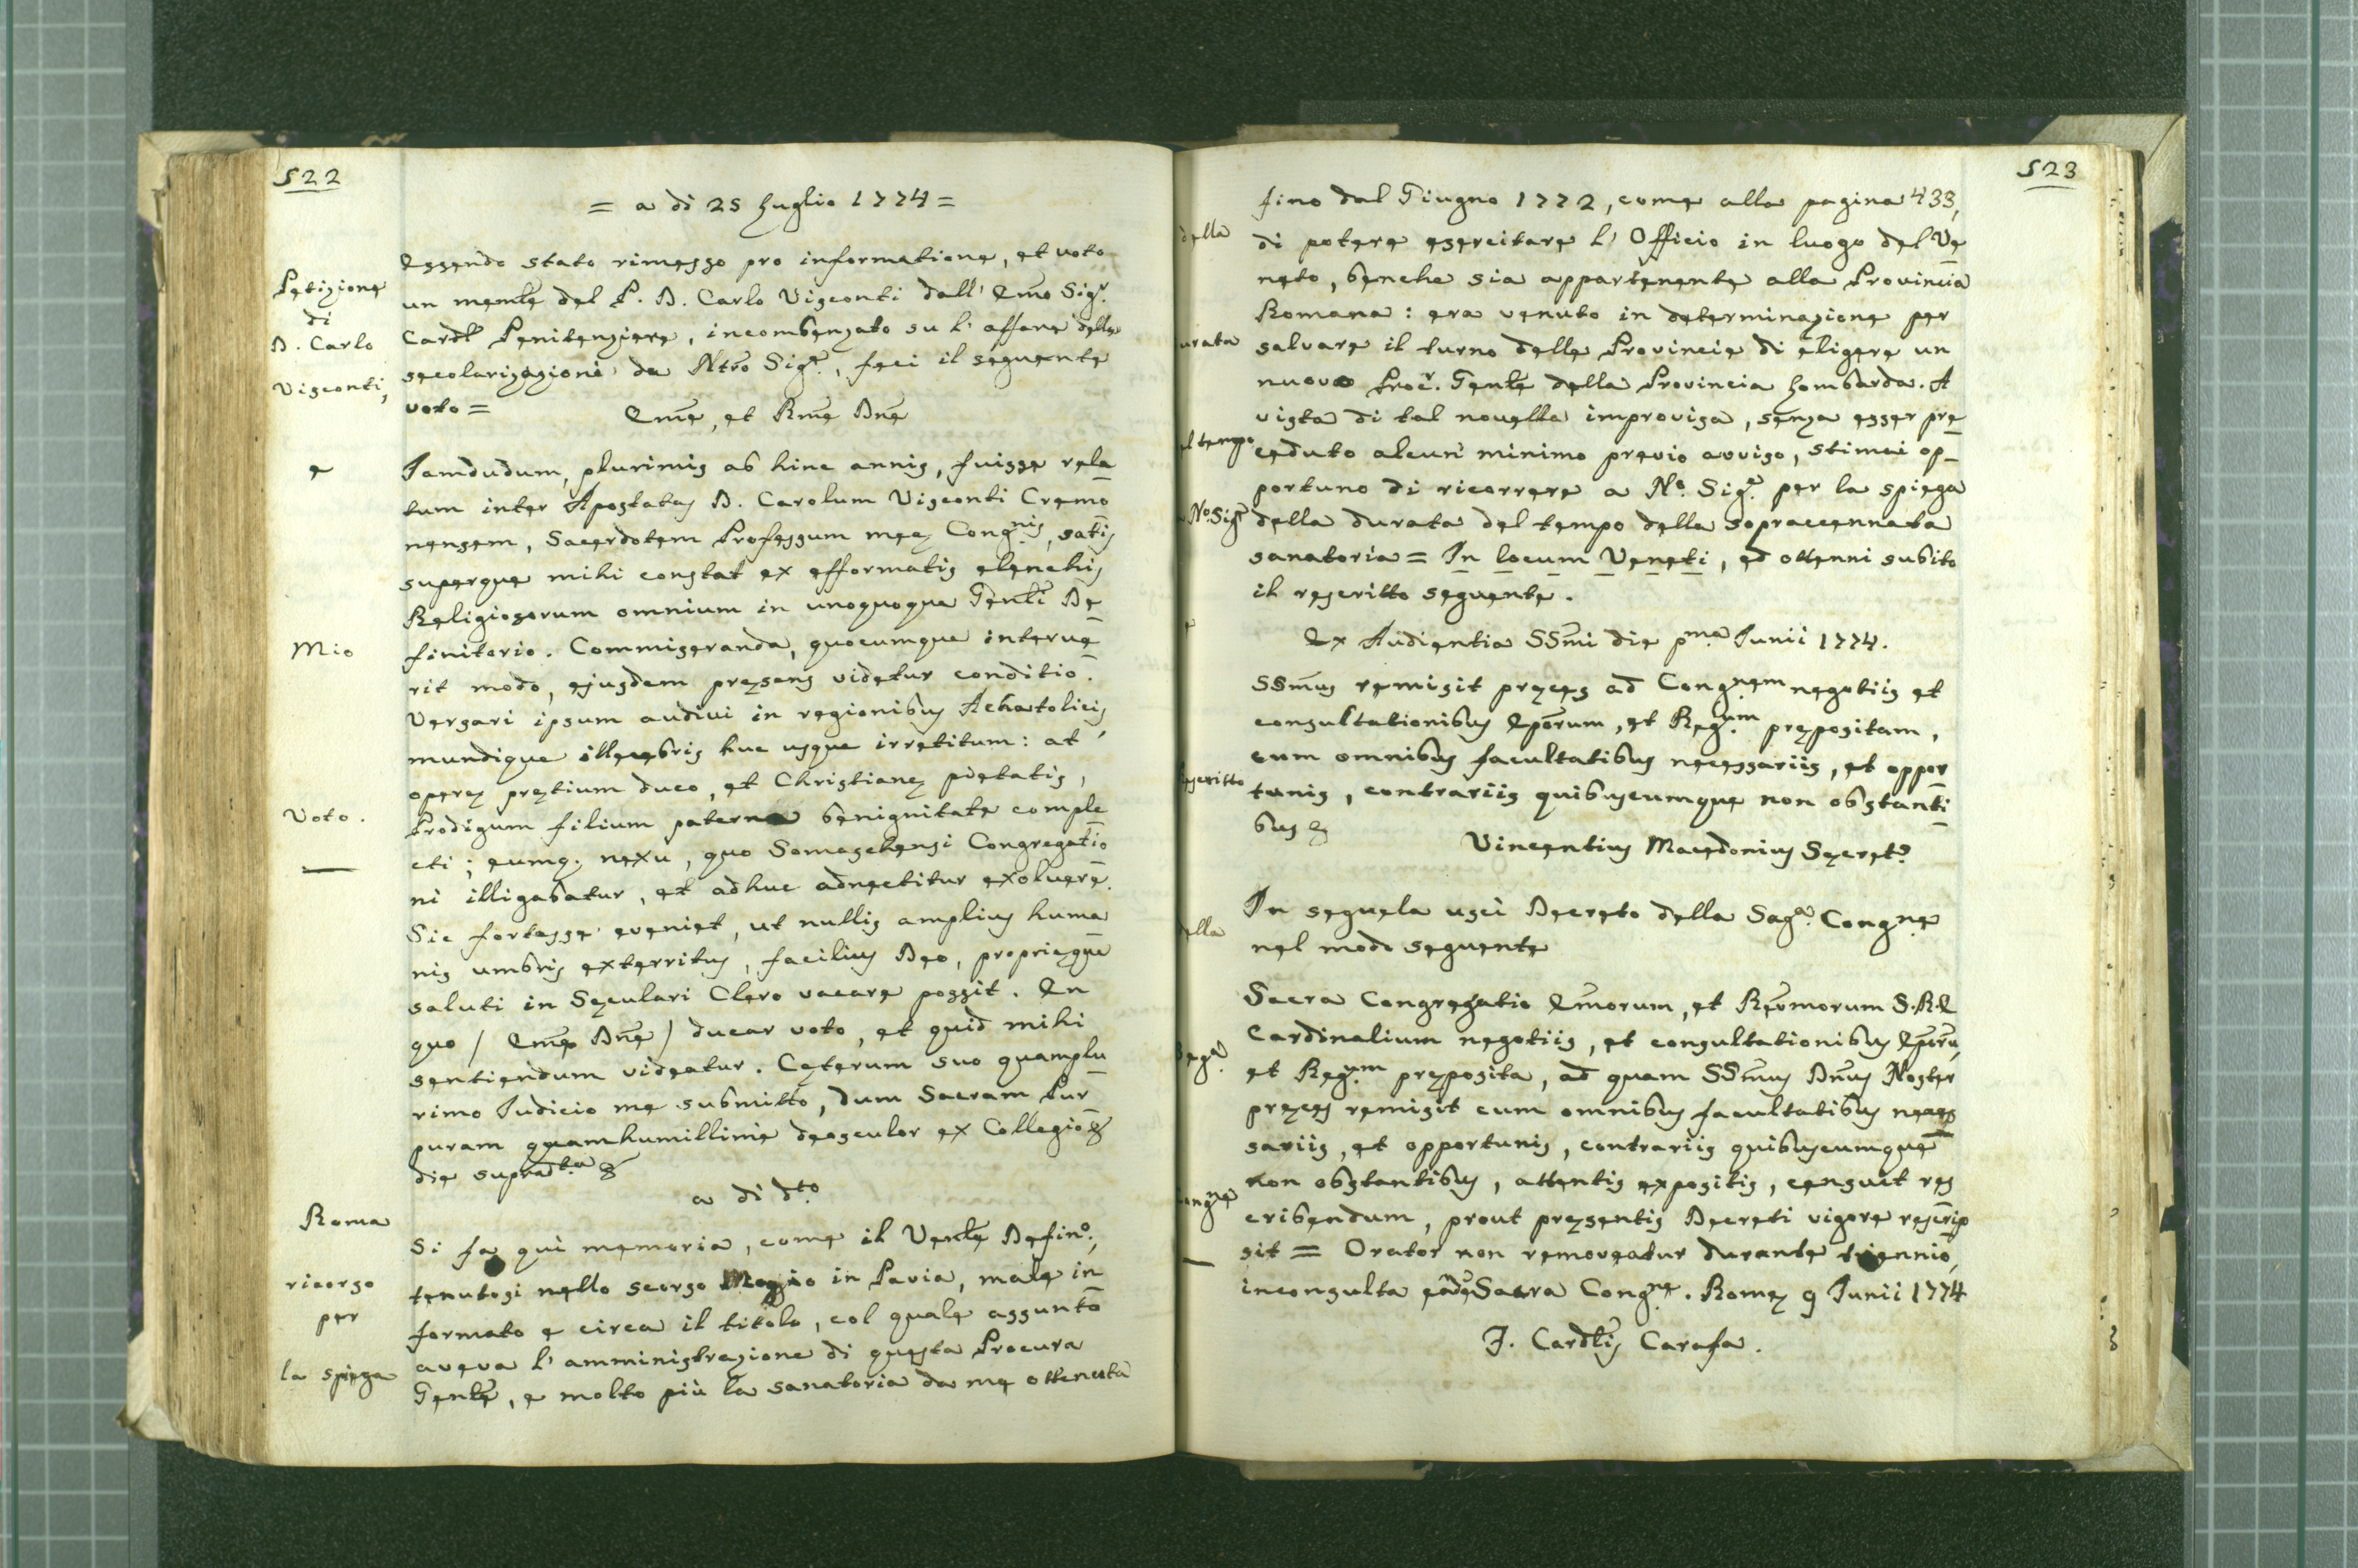 522
= a di 25 Luglio 1774 =
Petizione
di
D. Carlo
Visconti,
e
Mio
Voto.
Essendo stato rimesso pro informatione, et voto
un memle del P. D. Carlo Visconti dall' Emo Sigr.
Cardl Penitenziere, incombenzato su l' affare delle
secolarizazioni da Ntro Sigre, feci il seguente
voto =
Eme, et Rme Dne
Jamdudum, plurimis ab hinc annis, fuisse rela
tum inter Apostatas D. Carolum Visconti Cremo
nensem, Sacerdotem Professum meę Congnis, satis
superque mihi constat ex efformatis elenchis
Religiosorum omnium in unoquoque Genli De
finitorio. Commiseranda, quocumque interve
rit modo, ejusdem pręsens videtur conditio.
Versari ipsum audivi in regionibus Achatolicis,
mundique illecebris huc usque irretitum: at
operę pretium duco, et Christianę pietatis,
Prodigum filium paterna benignitate comple
cti; eumq. nexu, quo Somaschensi Congregatio
ni illigabatur, et adhuc adnectitur exolvere.
Sic fortasse eveniet, ut nullis amplius huma
nis umbris exterritus, facilius Deo, proprięque
saluti in Sęculari Clero vacare possit. En
quo / Eme Dne / ducar voto, et quid mihi
sentiendum videatur. Cęterum suo quamplu
rimo Judicio me submitto, dum Sacram Pur
puram quamhumillime deosculor ex Collegio &
die supradta &
a di dto
Roma
ricorso
per
la spiega
Si fa qui memoria, come il Venle Defino.,
tenutosi nello scorso Maggio in Pavia, male in
formato e circa il titolo, col quale assunto
aveva l' amministrazione di questa Procura
Genle, e molto più la sanatoria da me ottenuta
523
della
urata
el tempo
a No. Sigre
e
Rescritto
della
Saga.
Congne
fino dal Giugno 1772, come alla pagina 433,
di potere esercitare l' Officio in luogo del Ve
neto, benche sia appartenente alla Provincia
Romana: era venuto in determinazione per
salvare il turno delle Provincie di eligere un
nuovo Procr. Genle della Provincia Lombarda. A
vista di tal novella improvisa, senza esser pre
ceduto alcun minimo previo avviso, stimai op-
portuno di ricorrere a No. Sigre per la spiega
della durata del tempo della sopraccennata
sanatoria = In locum Veneti, ed ottenni subito
il rescritto seguente.
Ex Audientia SSmi die pma Junii 1774.
SSmus remisit pręces ad Congnem negotiis et
consultationibus Eporum, et Regum prępositam,
cum omnibus facultatibus necessariis, et oppor
tunis, contrariis quibuscumque non obstanti
bus &
Vincentius Macedonius Secreto
In sequela uscì Decreto della Saga. Congne
nel modo seguente
Sacra Congregatio Emorum, et Revmorum S.R.E
Cardinalium negotiis, et consultationibus Eporu,
et Regum pręposita, ad quam SSmus Dnus Noster
pręces remisit cum omnibus facultatibus neces
sariis, et opportunis, contrariis quibuscumque
non obstantibus, attentis expositis, censuit res
cribendum, prout pręsentis Decreti vigore rescrip
sit = Orator non removeatur durante triennio,
inconsulta eadē Sacra Congne. Romę 9 Junii 1774
J. Cardlis Carafa.